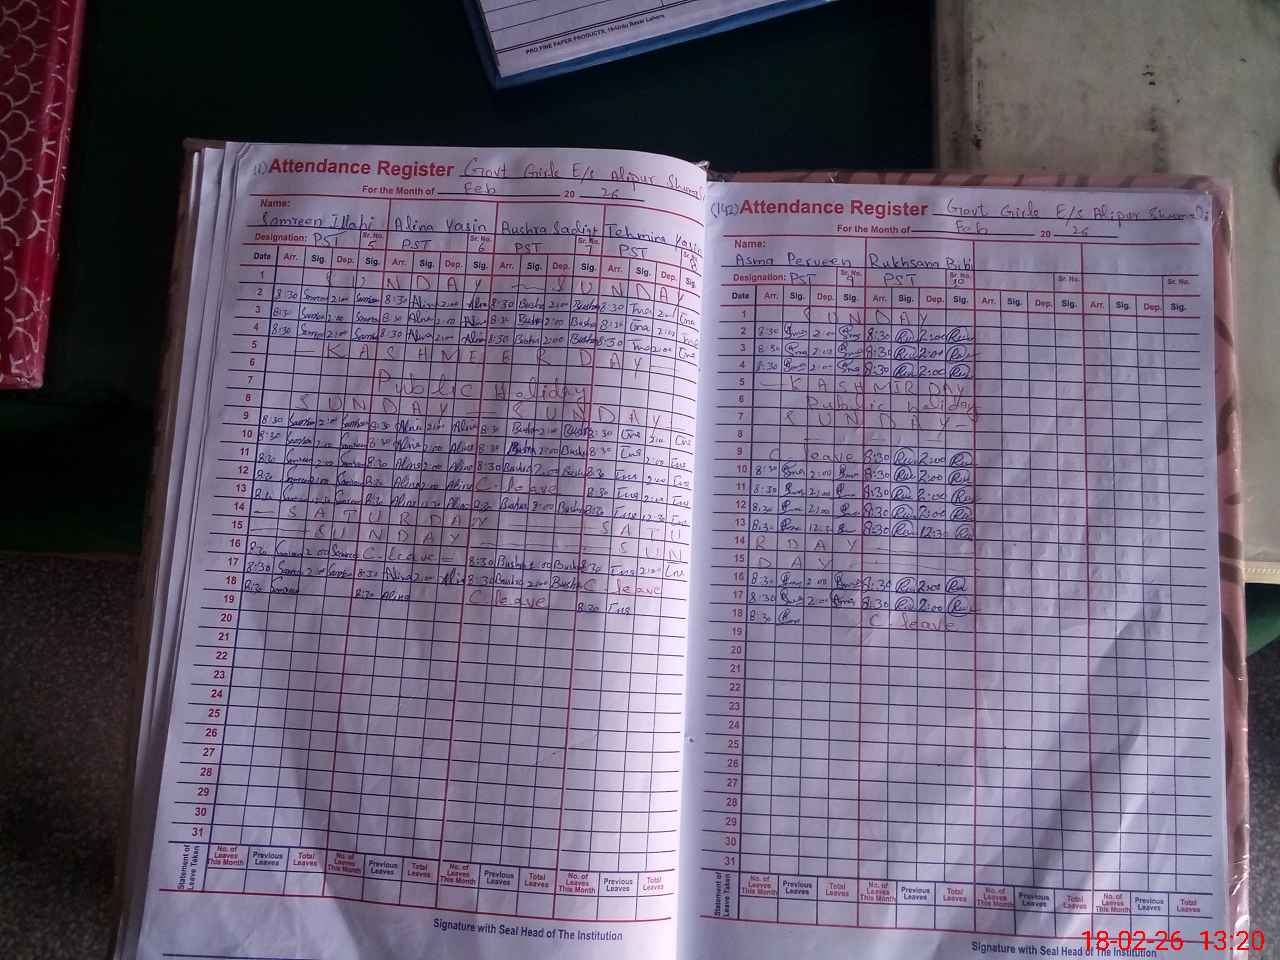 PRO FINE PAPER PRODUCTS, 19-Urdu Bazar Lahore.
Attendance Register Govt Girls E/s Alipur Shumali
For the Month of Feb 20 26
Name:
Samreen Illahi Alina Yasin Bushra Sadiq Tehmina Yasin
Designation: PST Sr. No. 5 PST Sr. No. 6 PST Sr. No. 7 PST Sr. No.
Date Arr. Sig. Dep. Sig. Arr. Sig. Dep. Sig. Arr. Sig. Dep. Sig. Arr. Sig. Dep. Sig.
1 SUNDAY — SUNDAY
2 8:30 2:00 8:30 Alina 2:00 Alina 8:30 Bushra 2:00 Bushra 8:30
3 8:30 2:00 8:30 Alina 2:00 Alina 8:30 Bushra 2:00 Bushra 8:30 2:00
4 8:30 2:00 8:30 Alina 2:00 Alina 8:30 Bushra 2:00 Bushra 8:30 2:00
5 — KASHMEER DAY —
6
7 Public Holiday
8 SUNDAY — SUNDAY
9 8:30 2:00 8:30 Alina 2:00 Alina 8:30 Bushra 2:00 Bushra 8:30 2:00
10 8:30 2:00 8:30 Alina 2:00 Alina 8:30 Bushra 2:00 Bushra 8:30 2:00
11 8:30 2:00 8:30 Alina 2:00 Alina 8:30 Bushra 2:00 Bushra 8:30 2:00
12 8:30 2:00 8:30 Alina 2:00 Alina C. leave 8:30 2:00
13 8:30 8:30 Alina 12:30 Alina 8:30 Bushra Bushra 8:30 12:30
14 — SATURDAY — SATU
15 — SUNDAY — SUN
16 8:30 2:00 C. leave — 8:30 Bushra 2:00 Bushra 8:30 2:00
17 8:30 2:00 8:30 Alina 2:00 Alina 8:30 Bushra 2:00 Bushra C leave
18 8:30 8:30 Alina C. leave 8:30
19
20
21
22
23
24
25
26
27
28
29
30
31
Statement of Leave Taken No. of Leaves This Month Previous Leaves Total Leaves No. of Leaves This Month Previous Leaves Total Leaves No. of Leaves This Month Previous Leaves Total Leaves No. of Leaves This Month Previous Leaves Total Leaves
Signature with Seal Head of The Institution
(142) Attendance Register Govt Girls E/s Alipur Shumali
For the Month of Feb 20 26
Name:
Asma Perveen Rukhsana Bibi
Designation: PST Sr. No. 9 PST Sr. No. 10 Sr. No. Sr. No.
Date Arr. Sig. Dep. Sig. Arr. Sig. Dep. Sig. Arr. Sig. Dep. Sig. Arr. Sig. Dep. Sig.
1 SUNDAY
2 8:30 2:00 8:30 2:00
3 8:30 2:00 8:30 2:00
4 8:30 2:00 8:30 2:00
5 — KASHMIR DAY
6 Public holiday
7 SUNDAY
8
9 C. leave 8:30 2:00
10 8:30 2:00 8:30 2:00
11 8:30 2:00 8:30 2:00
12 8:30 2:00 8:30 2:00
13 8:30 12:30 8:30 12:30
14 RDAY
15 DAY
16 8:30 2:00 8:30 2:00
17 8:30 2:00 8:30 2:00
18 8:30 C. leave
19
20
21
22
23
24
25
26
27
28
29
30
31
Statement of Leave Taken No. of Leaves This Month Previous Leaves Total Leaves No. of Leaves This Month Previous Leaves Total Leaves No. of Leaves This Month Previous Leaves Total Leaves No. of Leaves This Month Previous Leaves Total Leaves
Signature with Seal Head of The Institution
18-02-26 13:20